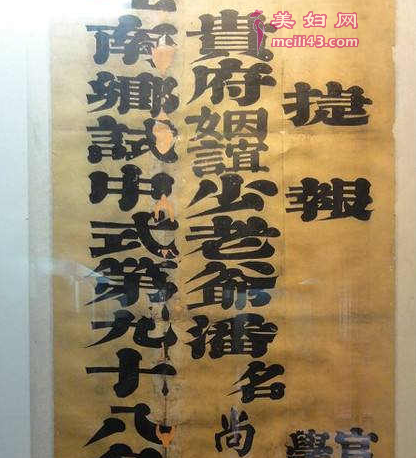 美妇网
meili43.com
捷報
官
學
貴府姻誼少老爺潘名尚
南鄉試中式第九十八